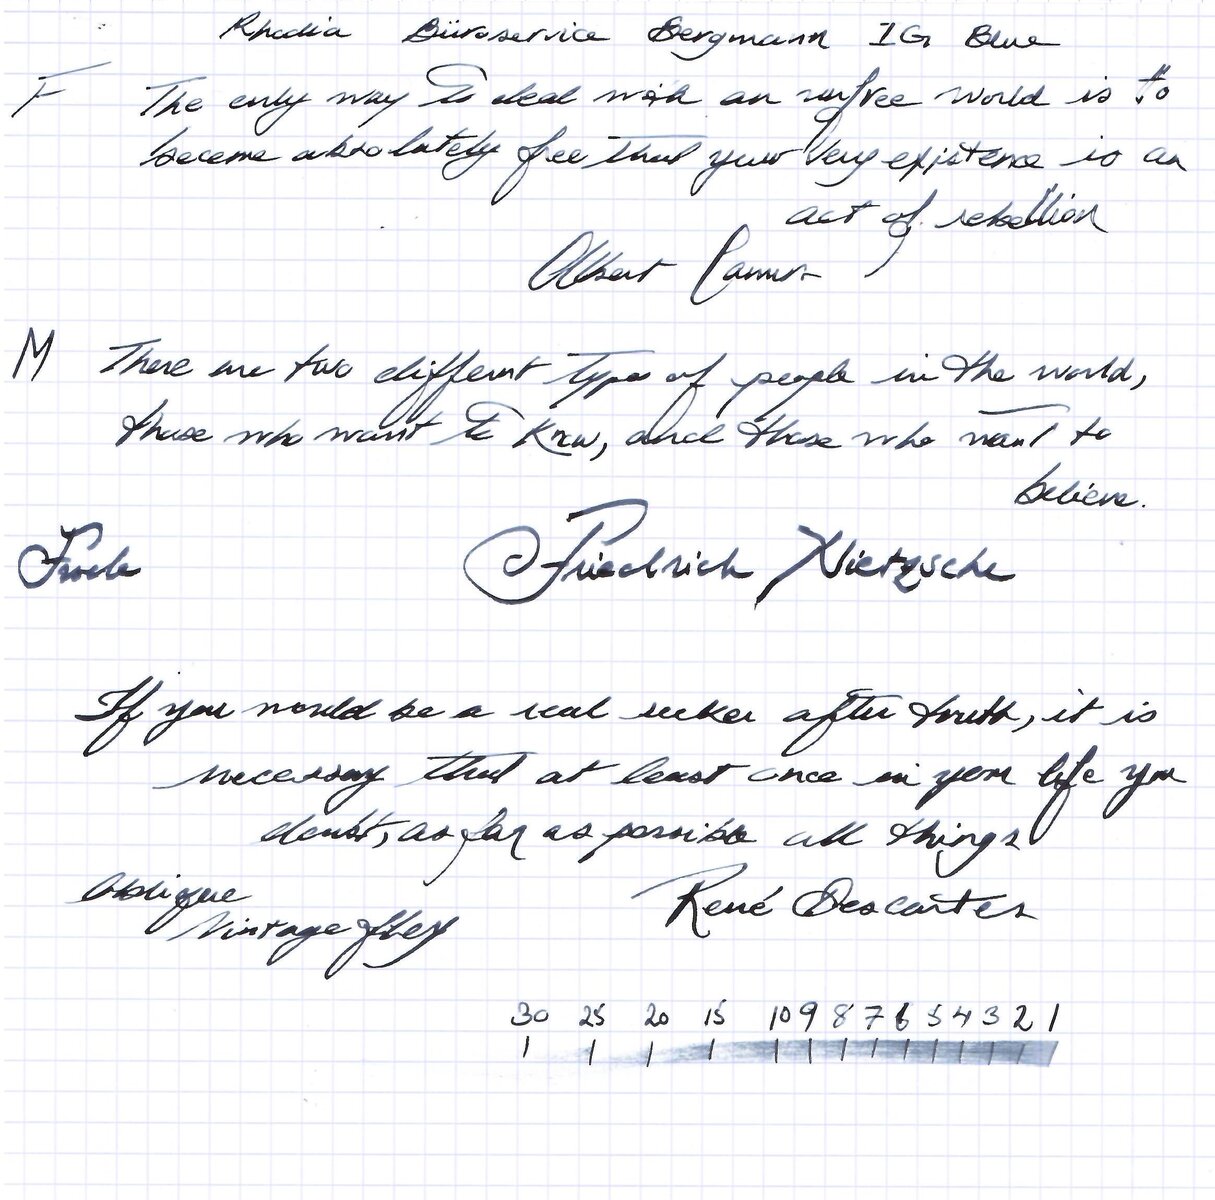 Rhodia Büroservice Bergmann IG Blue
F The only way to deal with an unfree world is to
become absolutely free that your very existence is an
act of rebellion
Albert Camus
M There are two different types of people in the world,
those who want to know, and those who want to
believe.
Friedrich Nietzsche
If you would be a real seeker after truth, it is
necessary that at least once in your life you
doubt, as far as possible all things
oblique
René Descartes
vintage flex
30 25 20 15 10 9 8 7 6 5 4 3 2 1